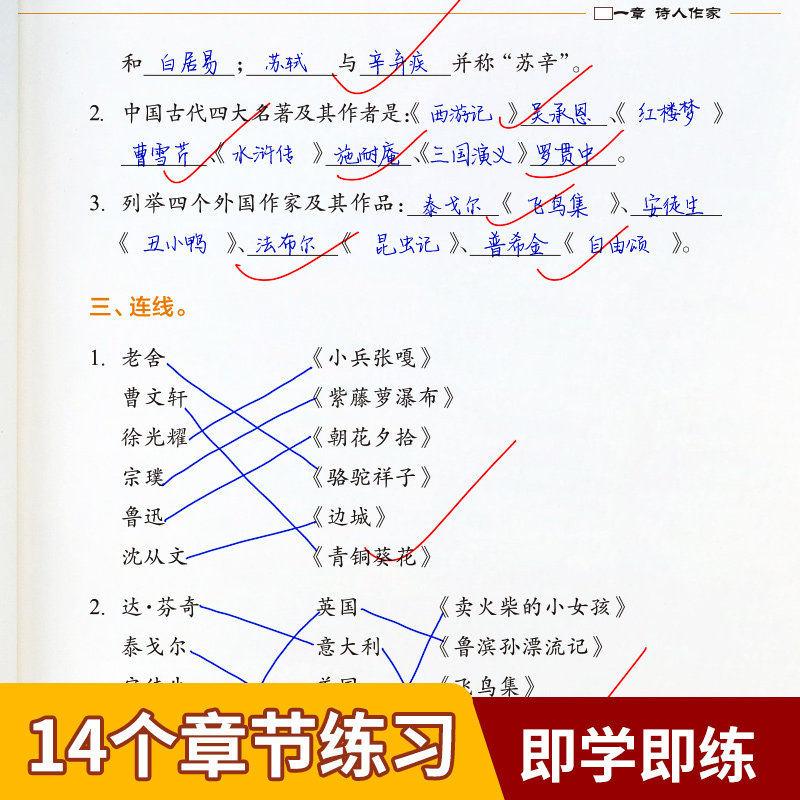 一章 诗人作家
和 白居易 ; 苏轼 与 辛弃疾 并称“苏辛”。
2. 中国古代四大名著及其作者是:《 西游记 》 吴承恩 、《 红楼梦 》
曹雪芹 、《 水浒传 》 施耐庵 、《 三国演义 》 罗贯中 。
3. 列举四个外国作家及其作品: 泰戈尔 《 飞鸟集 》、 安徒生
《 丑小鸭 》、 法布尔 《 昆虫记 》、 普希金 《 自由颂 》。
三、连线。
1. 老舍 《小兵张嘎》
曹文轩 《紫藤萝瀑布》
徐光耀 《朝花夕拾》
宗璞 《骆驼祥子》
鲁迅 《边城》
沈从文 《青铜葵花》
2. 达·芬奇 英国 《卖火柴的小女孩》
泰戈尔 意大利 《鲁滨孙漂流记》
《飞鸟集》
14个章节练习 即学即练